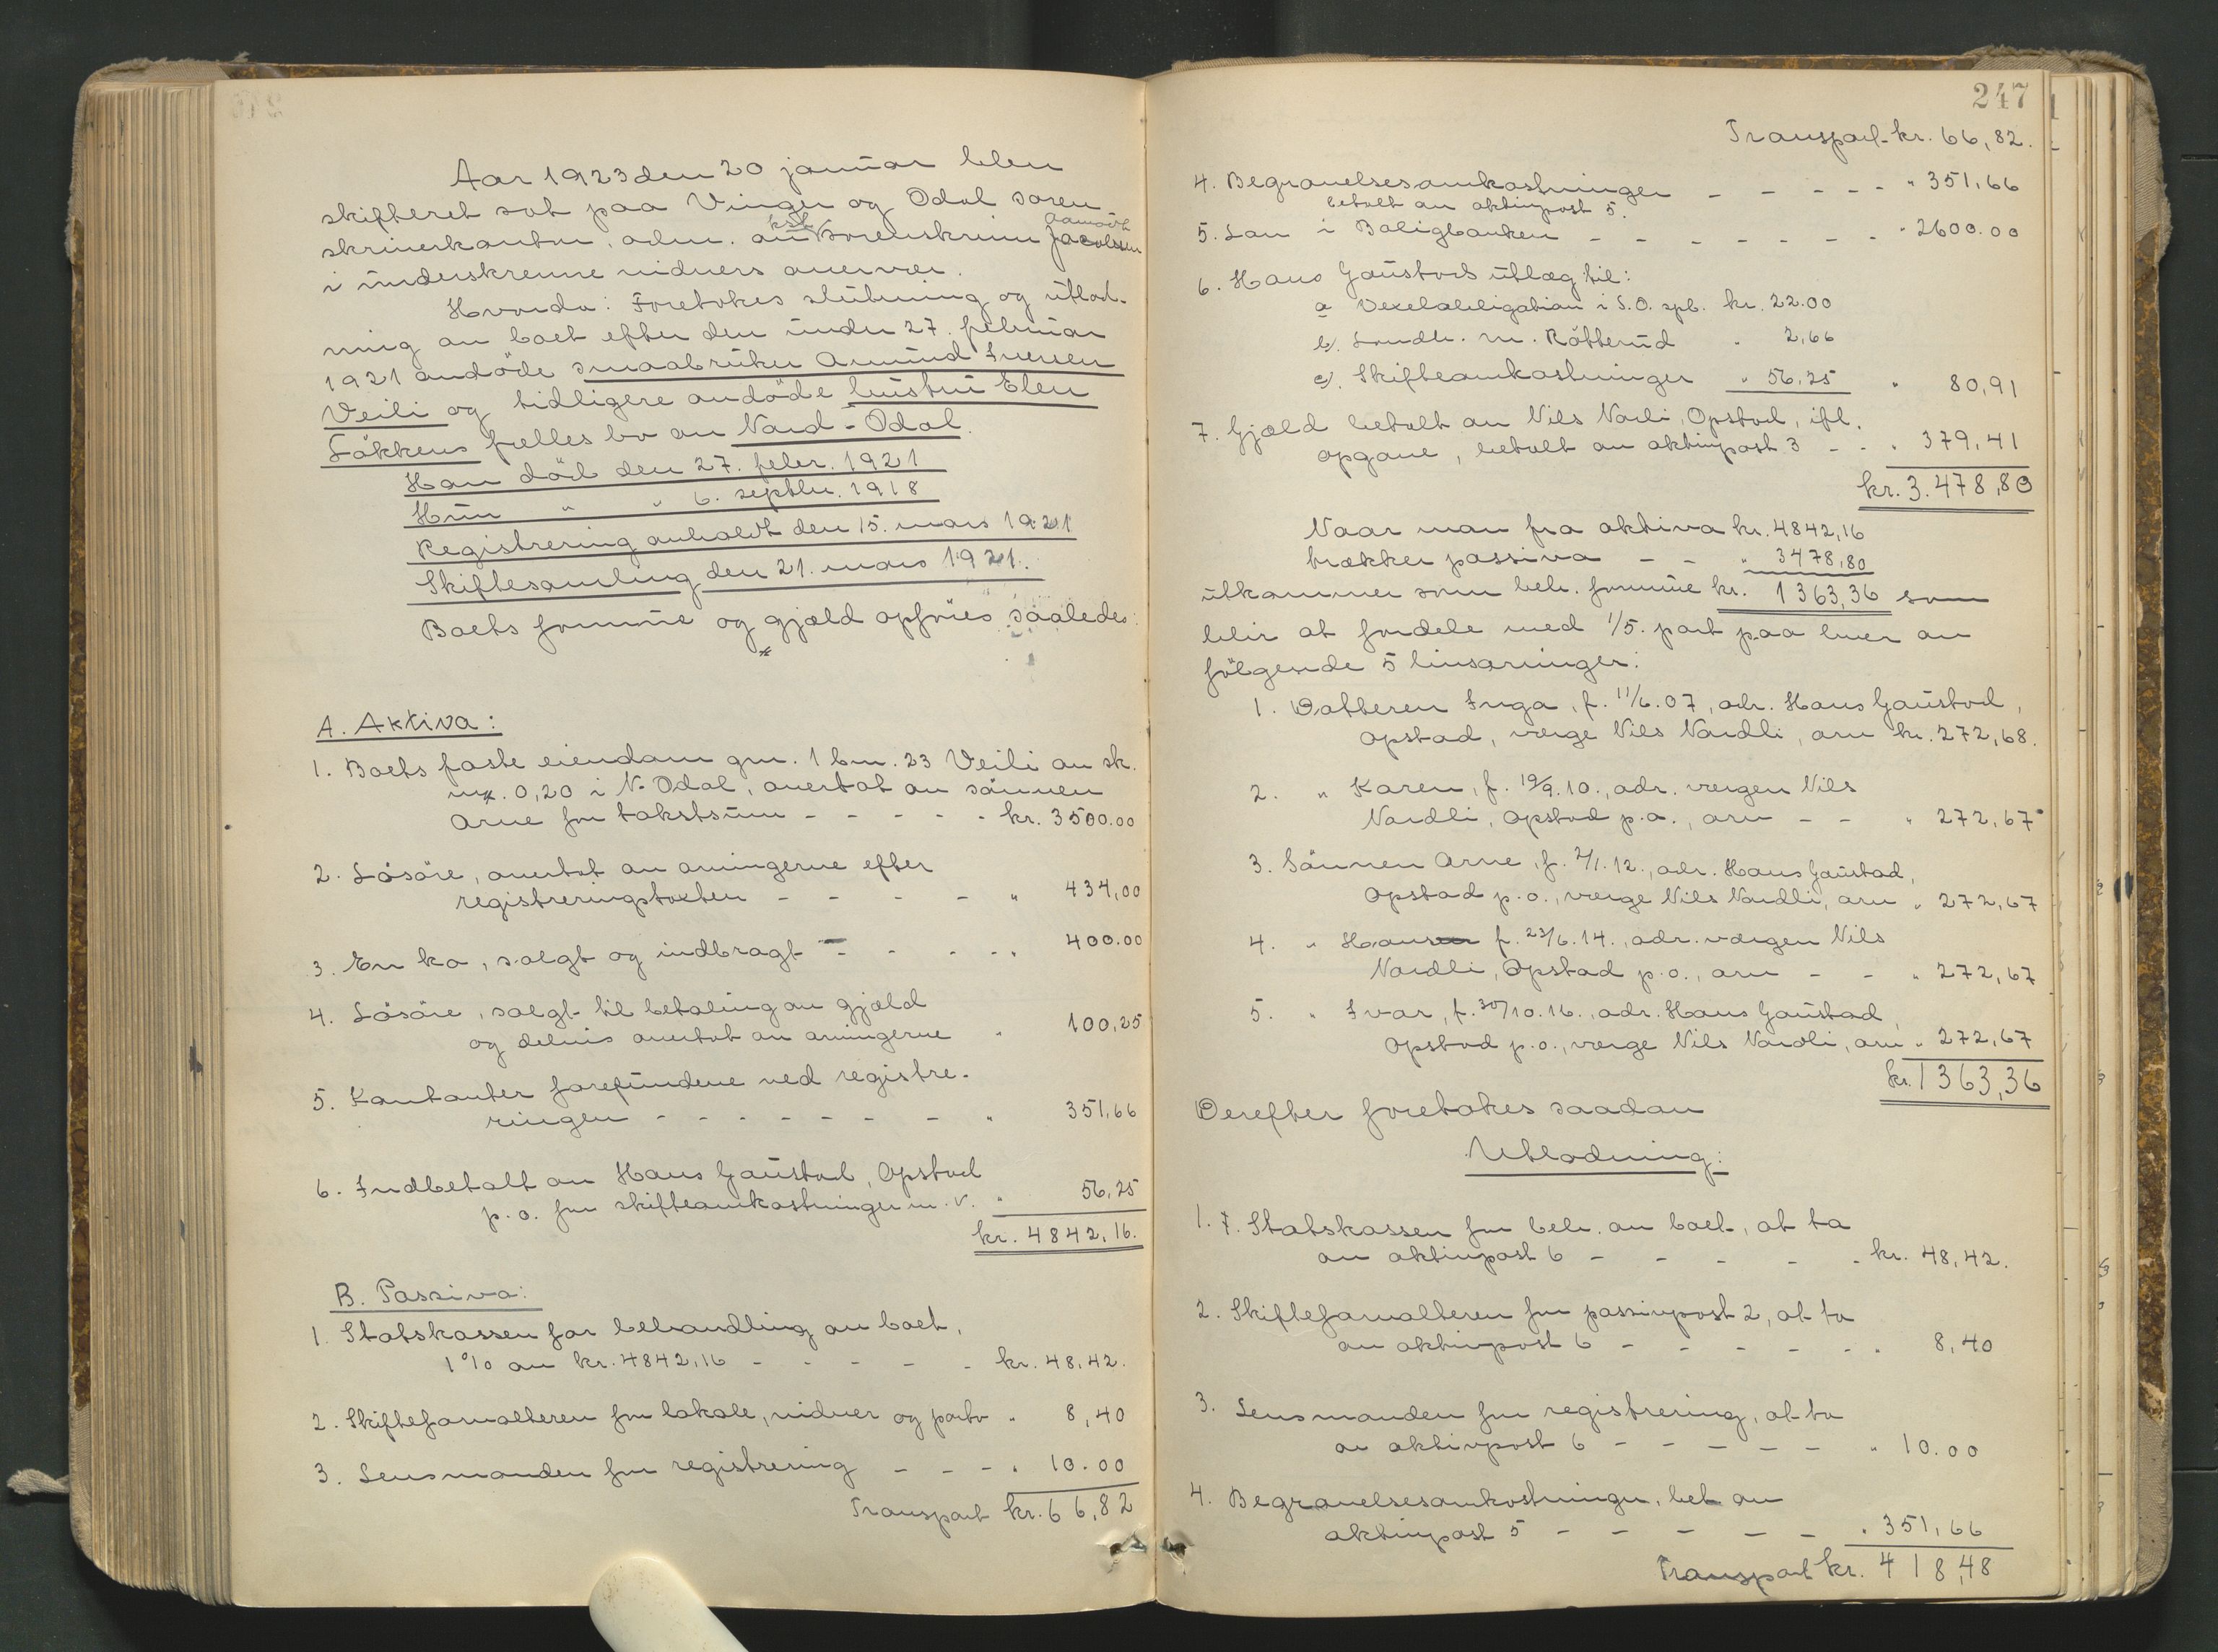 Aar 1923 den 20 januar blev
skifteret sat paa Vinger og Odal soren
skriverkontor, adm. av kst. sorenskriver Jacobsen
i underskrevne vidners overvær.
Hvorda: Foretokes slutning og utlod-
ning av boet efter den under 27. februar
1921 avdöde smaabruker Amund Iversen
Veili og tidligere avdöde hustru Elen
Lökkens fælles bo av Nord-Odal.
Han död den 27. febr. 1921
Hun " " 6. septbr. 1918
Registrering avholdt den 15. mars 1921
Skiftesamling den 21. mars 1921.
Boets formue og gjæld opföres saaledes:
A. Aktiva:
1. Boets faste eiendom gnr. 1 bnr. 23 Veili av sk.
mrk. 0,20 i N. Odal, overtat av sönnen
Arne for takstsum - - - - - kr. 3500.00
2. Lösöre, overtat av arvingerne efter
registreringstaksten - - - - " 434,00
3. En ko, solgt og indbragt - - - - " 400.00
4. Lösöre, solgt til betaling av gjæld
og delvis overtat av arvingerne " 100,25
5. Kontanter forefundene ved registre-
ringen - - - - - - - " 351,66
6. Indbetalt av Hans Gaustad, Opstad
p.o. for skifteomkostninger m.v. " 56,25
kr. 4842,16.
B. Passiva:
1. Statskassen for behandling av boet,
1% av kr. 4842,16 - - - - - kr. 48,42.
2. Skifteforvalteren for lokale, vidner og porto " 8,40
3. Lensmanden for registrering - - - " 10.00
Transport kr. 66,82
247
Transport kr. 66,82.
4. Begravelsesomkostninger - - - - - " 351,66
betalt av aktivpost 5.
5. Lån i Boligbanken - - - - - - - " 2600.00
6. Hans Gaustads utlæg til:
a Vexelobligation i S.O. spb. kr. 22.00
b). Landh. m. Råtterud " 2,66
c). Skifteomkostninger " 56,25 " 80,91
7. Gjæld betalt av Nils Nordli, Opstad, ifl.
opgave, betalt av aktivpost 3 - - " 379,41
kr. 3.478,80
Naar man fra aktiva kr. 4842,16
trækker passiva - - " 3478,80
utkommer som beh. formue kr. 1363,36 som
blir at fordele med 1/5. part paa hver av
fölgende 5 livsarvinger:
1. Datteren Inga, f. 11/6.07, adr. Hans Gaustad,
Opstad, verge Nils Nordli, arv kr. 272,68.
2. " Karen, f. 19/9.10., adr. vergen Nils
Nordli, Opstad p.o., arv - - " 272,67
3. Sönnen Arne, f. 2/1.12., adr. Hans Gaustad,
Opstad p.o., verge Nils Nordli, arv " 272,67
4. " Hans f. 23/6.14., adr. vergen Nils
Nordli, Opstad p.o., arv - - " 272,67
5. " Ivar, f. 30/10.16., adr. Hans Gaustad,
Opstad p.o., verge Nils Nordli, arv " 272,67
kr. 1363,36
Derefter foretokes saadan
Utlodning:
1. Statskassen for beh. av boet, at ta
av aktivpost 6 - - - - - kr. 48,42.
2. Skifteforvalteren for passivpost 2, at ta
av aktivpost 6 - - - - - " 8,40
3. Lensmanden for registrering, at ta
av aktivpost 6 - - - - - " 10.00
4. Begravelsesomkostninger, bet. av
aktivpost 5 - - - - - " 351,66
Transport kr. 418,48